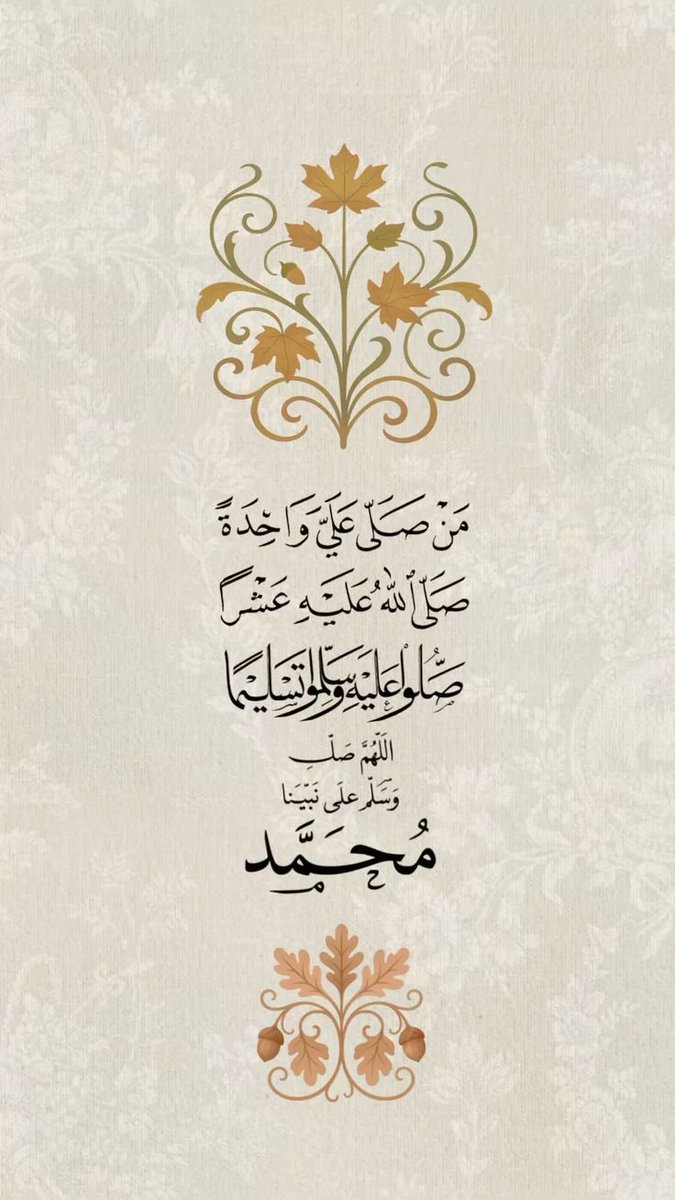 مَنْ صَلَّى عَلَيَّ وَاحِدَةً
صَلَّى ٱللَّهُ عَلَيْهِ عَشْرًا
صَلُّوا عَلَيْهِ وَسَلِّمُوا تَسْلِيمًا
اللَّهُمَّ صَلِّ
وَسَلِّمْ علَى نَبِيِّنَا
مُحَمَّد